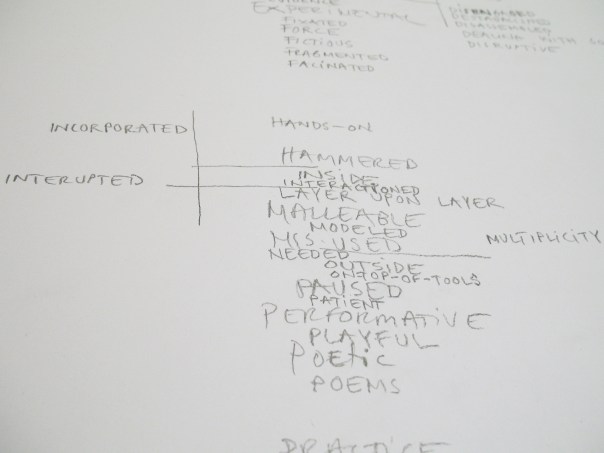 EXPERIMENTAL
FIXATED
FORCE
FICTIOUS
FRAGMENTED
FACINATED
DISRUPTIVE
INCORPORATED
HANDS-ON
HAMMERED
INTERUPTED
INSIDE
INTERACTIONED
LAYER UPON LAYER
MALLEABLE
MODELED
MIS-USED
MULTIPLICITY
NEEDED
OUTSIDE
ONTOP-OF-TOOLS
PAUSED
PATIENT
PERFORMATIVE
PLAYFUL
POETIC
POEMS
PRACTICE